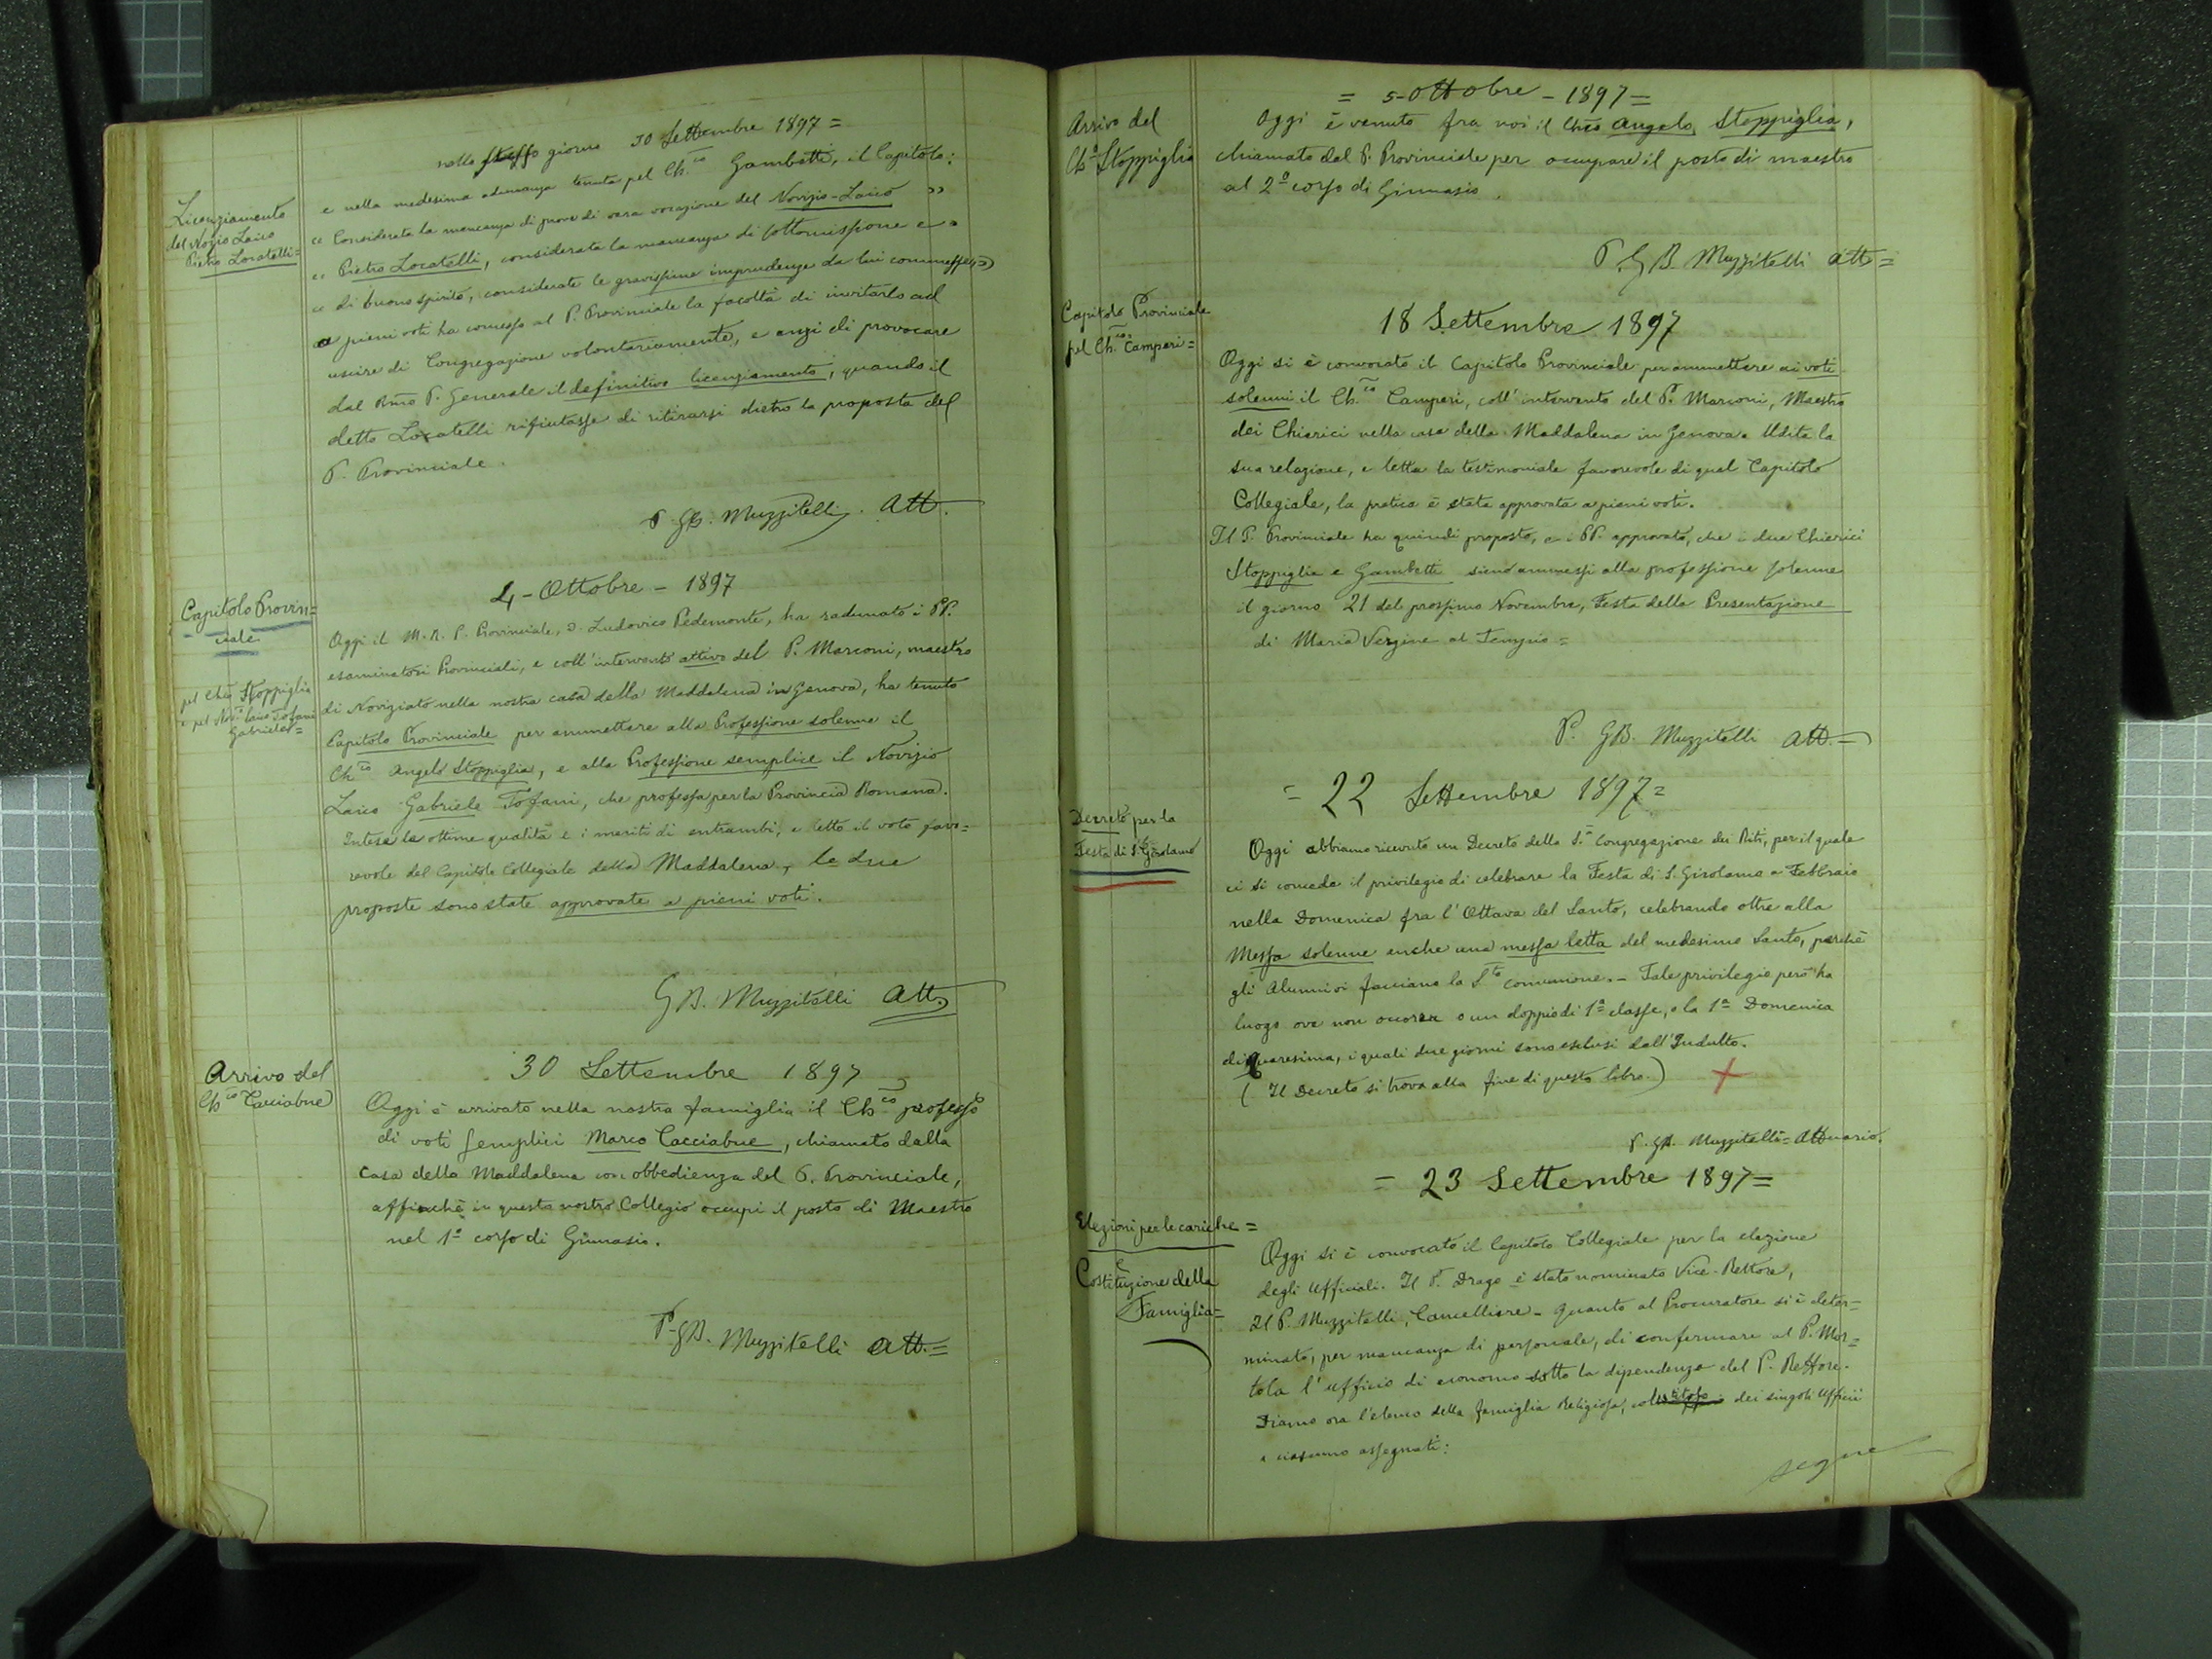 nello stesso giorno 30 Settembre 1897 =
Licenziamento
del Novizio Laico
Pietro Locatelli =
e nella medesima adunanza tenuta pel Ch.co Gambetti, il Capitolo:
« Considerata la mancanza di prove di vera vocazione del Novizio-Laico »
« Pietro Locatelli, considerata la mancanza di sottomissione e »
« di buono spirito, considerate le gravissime imprudenze da lui commesse, »
a pieni voti ha concesso al P. Provinciale la facoltà di invitarlo ad
uscire di Congregazione volontariamente, e anzi di provocare
dal Rmo P. Generale il definitivo licenziamento, quando il
detto Locatelli rifiutasse di ritirarsi dietro la proposta del
P. Provinciale.
P. GB. Muzzitelli. Att.
4 - Ottobre - 1897
Capitolo Provin=
ciale
pel Ch.co Stoppiglia
e pel Nov.o Laico Tofani
Gabriele =
Oggi il M. R. P. Provinciale, D. Ludovico Pedemonte, ha radunato i PP.
esaminatori Provinciali, e coll'intervento attivo del P. Marconi, maestro
di Noviziato nella nostra casa della Maddalena in Genova, ha tenuto
Capitolo Provinciale per ammettere alla Professione solenne il
Ch.co Angelo Stoppiglia, e alla Professione semplice il Novizio
Laico Gabriele Tofani, che professa per la Provincia Romana.
Intese le ottime qualità e i meriti di entrambi, e letto il voto favo=
revole del Capitolo Collegiale della Maddalena, le due
proposte sono state approvate a pieni voti.
GB. Muzzitelli Att.
30 Settembre 1897
Arrivo del
Ch.co Cacciabue
Oggi è arrivato nella nostra famiglia il Ch.co professo
di voti semplici Marco Cacciabue, chiamato dalla
Casa della Maddalena con obbedienza del P. Provinciale,
affinchè in questo nostro Collegio occupi il posto di Maestro
nel 1º corso di Ginnasio.
P. GB. Muzzitelli Att. =
= 5 - Ottobre - 1897 =
Arrivo del
Ch.o Stoppiglia
Oggi è venuto fra noi il Ch.co Angelo Stoppiglia,
chiamato dal P. Provinciale per occupare il posto di maestro
al 2º corso di Ginnasio.
P. GB. Muzzitelli Att =
18 Settembre 1897
Capitolo Provinciale
pel Ch.co Camperi =
Oggi si è convocato il Capitolo Provinciale per ammettere ai voti
solenni il Ch.co Camperi, coll'intervento del P. Marconi, Maestro
dei Chierici nella casa della Maddalena in Genova. Udita la
sua relazione, e letta la testimoniale favorevole di quel Capitolo
Collegiale, la pratica è stata approvata a pieni voti.
Il P. Provinciale ha quindi proposto, e i PP. approvato, che i due Chierici
Stoppiglia e Gambetti sieno ammessi alla professione solenne
il giorno 21 del prossimo Novembre, Festa della Presentazione
di Maria Vergine al Tempio =
P. GB. Muzzitelli Att. =
= 22 Settembre 1897 =
Decreto per la
Festa di S. Girolamo
Oggi abbiamo ricevuto un Decreto della S.a Congregazione dei Riti, per il quale
ci si concede il privilegio di celebrare la Festa di S. Girolamo a Febbraio
nella Domenica fra l'Ottava del Santo, celebrando oltre alla
Messa solenne anche una messa letta del medesimo Santo, perchè
gli Alunni vi facciano la S.ta comunione. - Tale privilegio però ha
luogo ove non occorra o un doppio di 1ª classe, o la 1ª Domenica
di Quaresima, i quali due giorni sono esclusi dall'Indulto.
( Il Decreto si trova alla fine di questo libro. )
P. GB. Muzzitelli = Attuario.
= 23 Settembre 1897 =
Elezioni per le cariche =
e
Costituzione della
Famiglia =
Oggi si è convocato il Capitolo Collegiale per la elezione
degli Ufficiali. Il P. Drago è stato nominato Vice-Rettore,
Il P. Muzzitelli, Cancelliere - Quanto al Procuratore si è deter=
minato, per mancanza di personale, di confermare al P. Mor=
tola l'ufficio di economo sotto la dipendenza del P. Rettore.
Diamo ora l'elenco della famiglia Religiosa, dei singoli Ufficii
a ciascuno assegnati:
segue